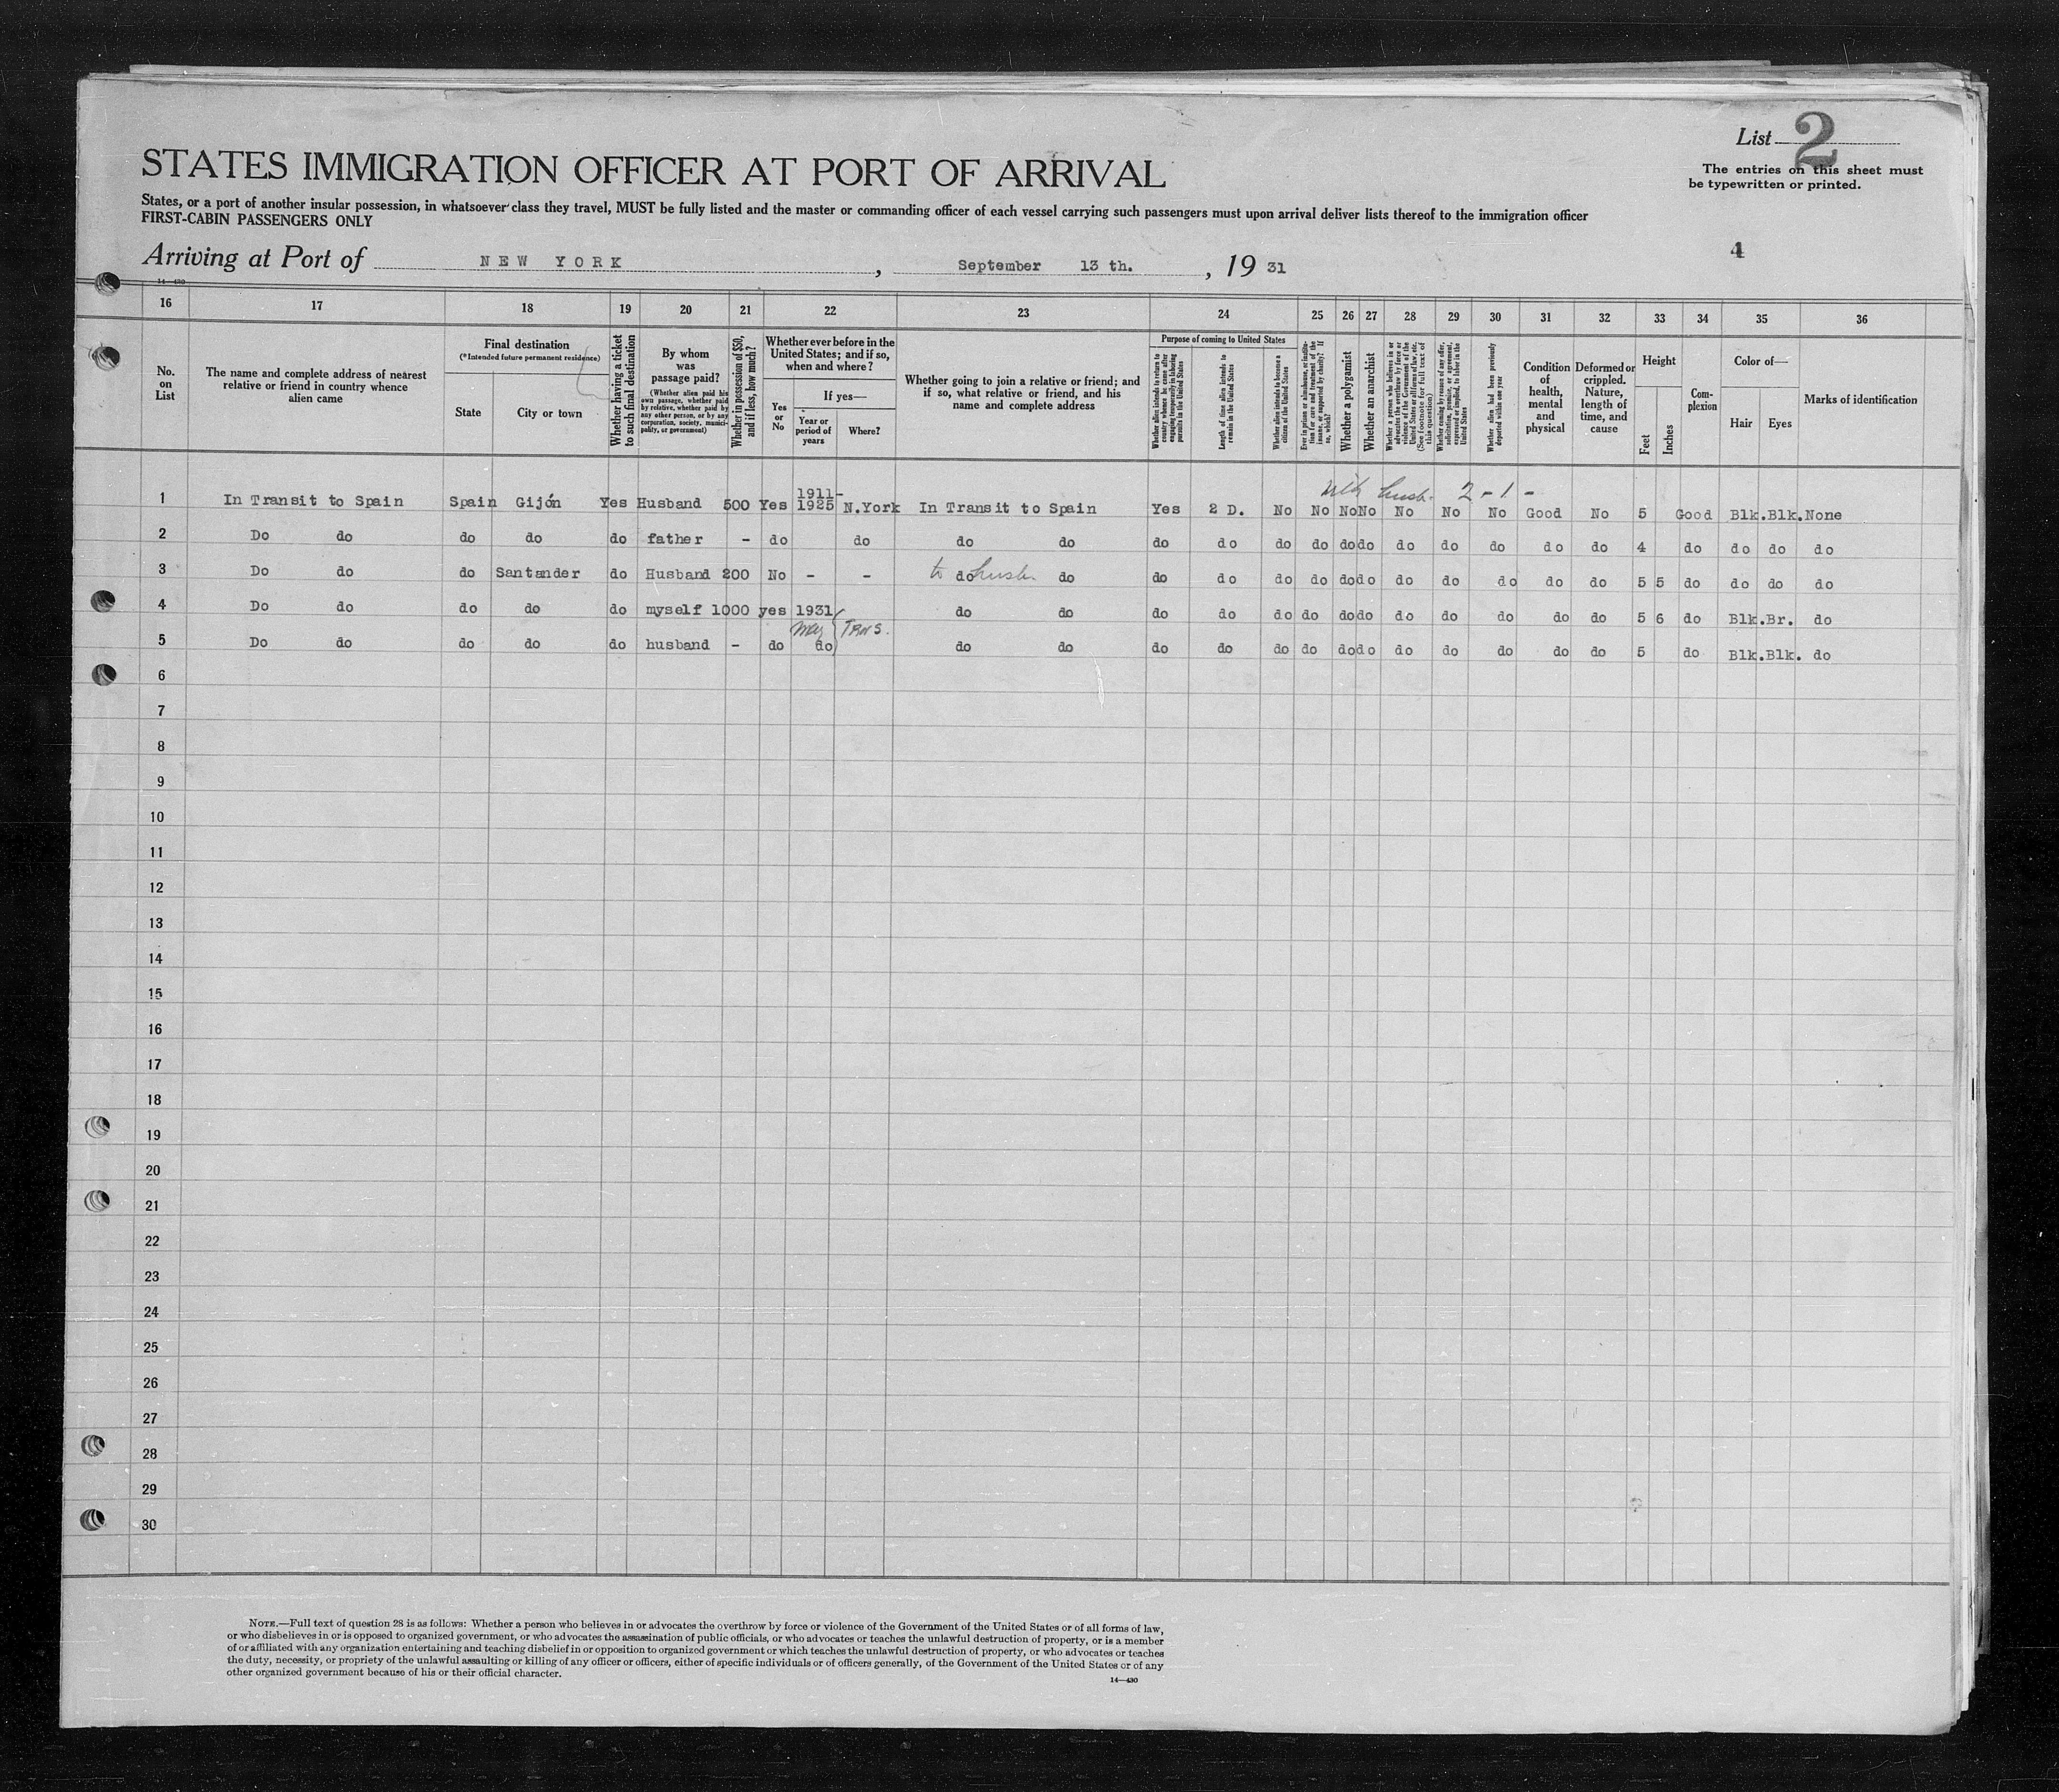 List 2
The entries on this sheet must
be typewritten or printed.
STATES IMMIGRATION OFFICER AT PORT OF ARRIVAL
States, or a port of another insular possession, in whatsoever class they travel, MUST be fully listed and the master or commanding officer of each vessel carrying such passengers must upon arrival deliver lists thereof to the immigration officer
FIRST-CABIN PASSENGERS ONLY
4
Arriving at Port of NEW YORK, September 13 th., 19 31
14—430
16 17 18 19 20 21 22 23 24 25 26 27 28 29 30 31 32 33 34 35 36
No. on List
The name and complete address of nearest relative or friend in country whence alien came
Final destination
(*Intended future permanent residence)
State
City or town
Whether having a ticket to such final destination
By whom was passage paid?
(Whether alien paid his own passage, whether paid by relative, whether paid by any other person, or by any corporation, society, municipality, or government)
Whether in possession of $50, and if less, how much?
Whether ever before in the United States; and if so, when and where?
Yes or No
If yes—
Year or period of years
Where?
Whether going to join a relative or friend; and if so, what relative or friend, and his name and complete address
Purpose of coming to United States
Whether alien intends to return to country whence he came after engaging temporarily in laboring pursuits in the United States
Length of time alien intends to remain in the United States
Whether alien intends to become a citizen of the United States
Ever in prison or almshouse, or institution for care and treatment of the insane, or supported by charity? If so, which?
Whether a polygamist
Whether an anarchist
Whether a person who believes in or advocates the overthrow by force or violence of the Government of the United States or all forms of law, etc. (See footnote for full text of this question)
Whether coming by reason of any offer, solicitation, promise, or agreement, expressed or implied, to labor in the United States
Whether alien had been previously deported within one year
Condition of health, mental and physical
Deformed or crippled. Nature, length of time, and cause
Height
Feet
Inches
Complexion
Color of—
Hair
Eyes
Marks of identification
with husb. 2-1-
1 In Transit to Spain Spain Gijón Yes Husband 500 Yes 1911-1925 N.York In Transit to Spain Yes 2 D. No No No No No No No Good No 5 Good Blk. Blk. None
2 Do do do do do father - do do do do do do do do do do do do do do do 4 do do do do
3 Do do do Santander do Husband 200 No - - to do husb. do do do do do do do do do do do do 5 5 do do do do
4 Do do do do do myself 1000 yes 1931 do do do do do do do do do do do do do 5 6 do Blk. Br. do
May Trns.
5 Do do do do do husband - do do do do do do do do do do do do do do do 5 do Blk. Blk. do
6
7
8
9
10
11
12
13
14
15
16
17
18
19
20
21
22
23
24
25
26
27
28
29
30
NOTE.—Full text of question 28 is as follows: Whether a person who believes in or advocates the overthrow by force or violence of the Government of the United States or of all forms of law,
or who disbelieves in or is opposed to organized government, or who advocates the assassination of public officials, or who advocates or teaches the unlawful destruction of property, or is a member
of or affiliated with any organization entertaining and teaching disbelief in or opposition to organized government or which teaches the unlawful destruction of property, or who advocates or teaches
the duty, necessity, or propriety of the unlawful assaulting or killing of any officer or officers, either of specific individuals or of officers generally, of the Government of the United States or of any
other organized government because of his or their official character.
14—430